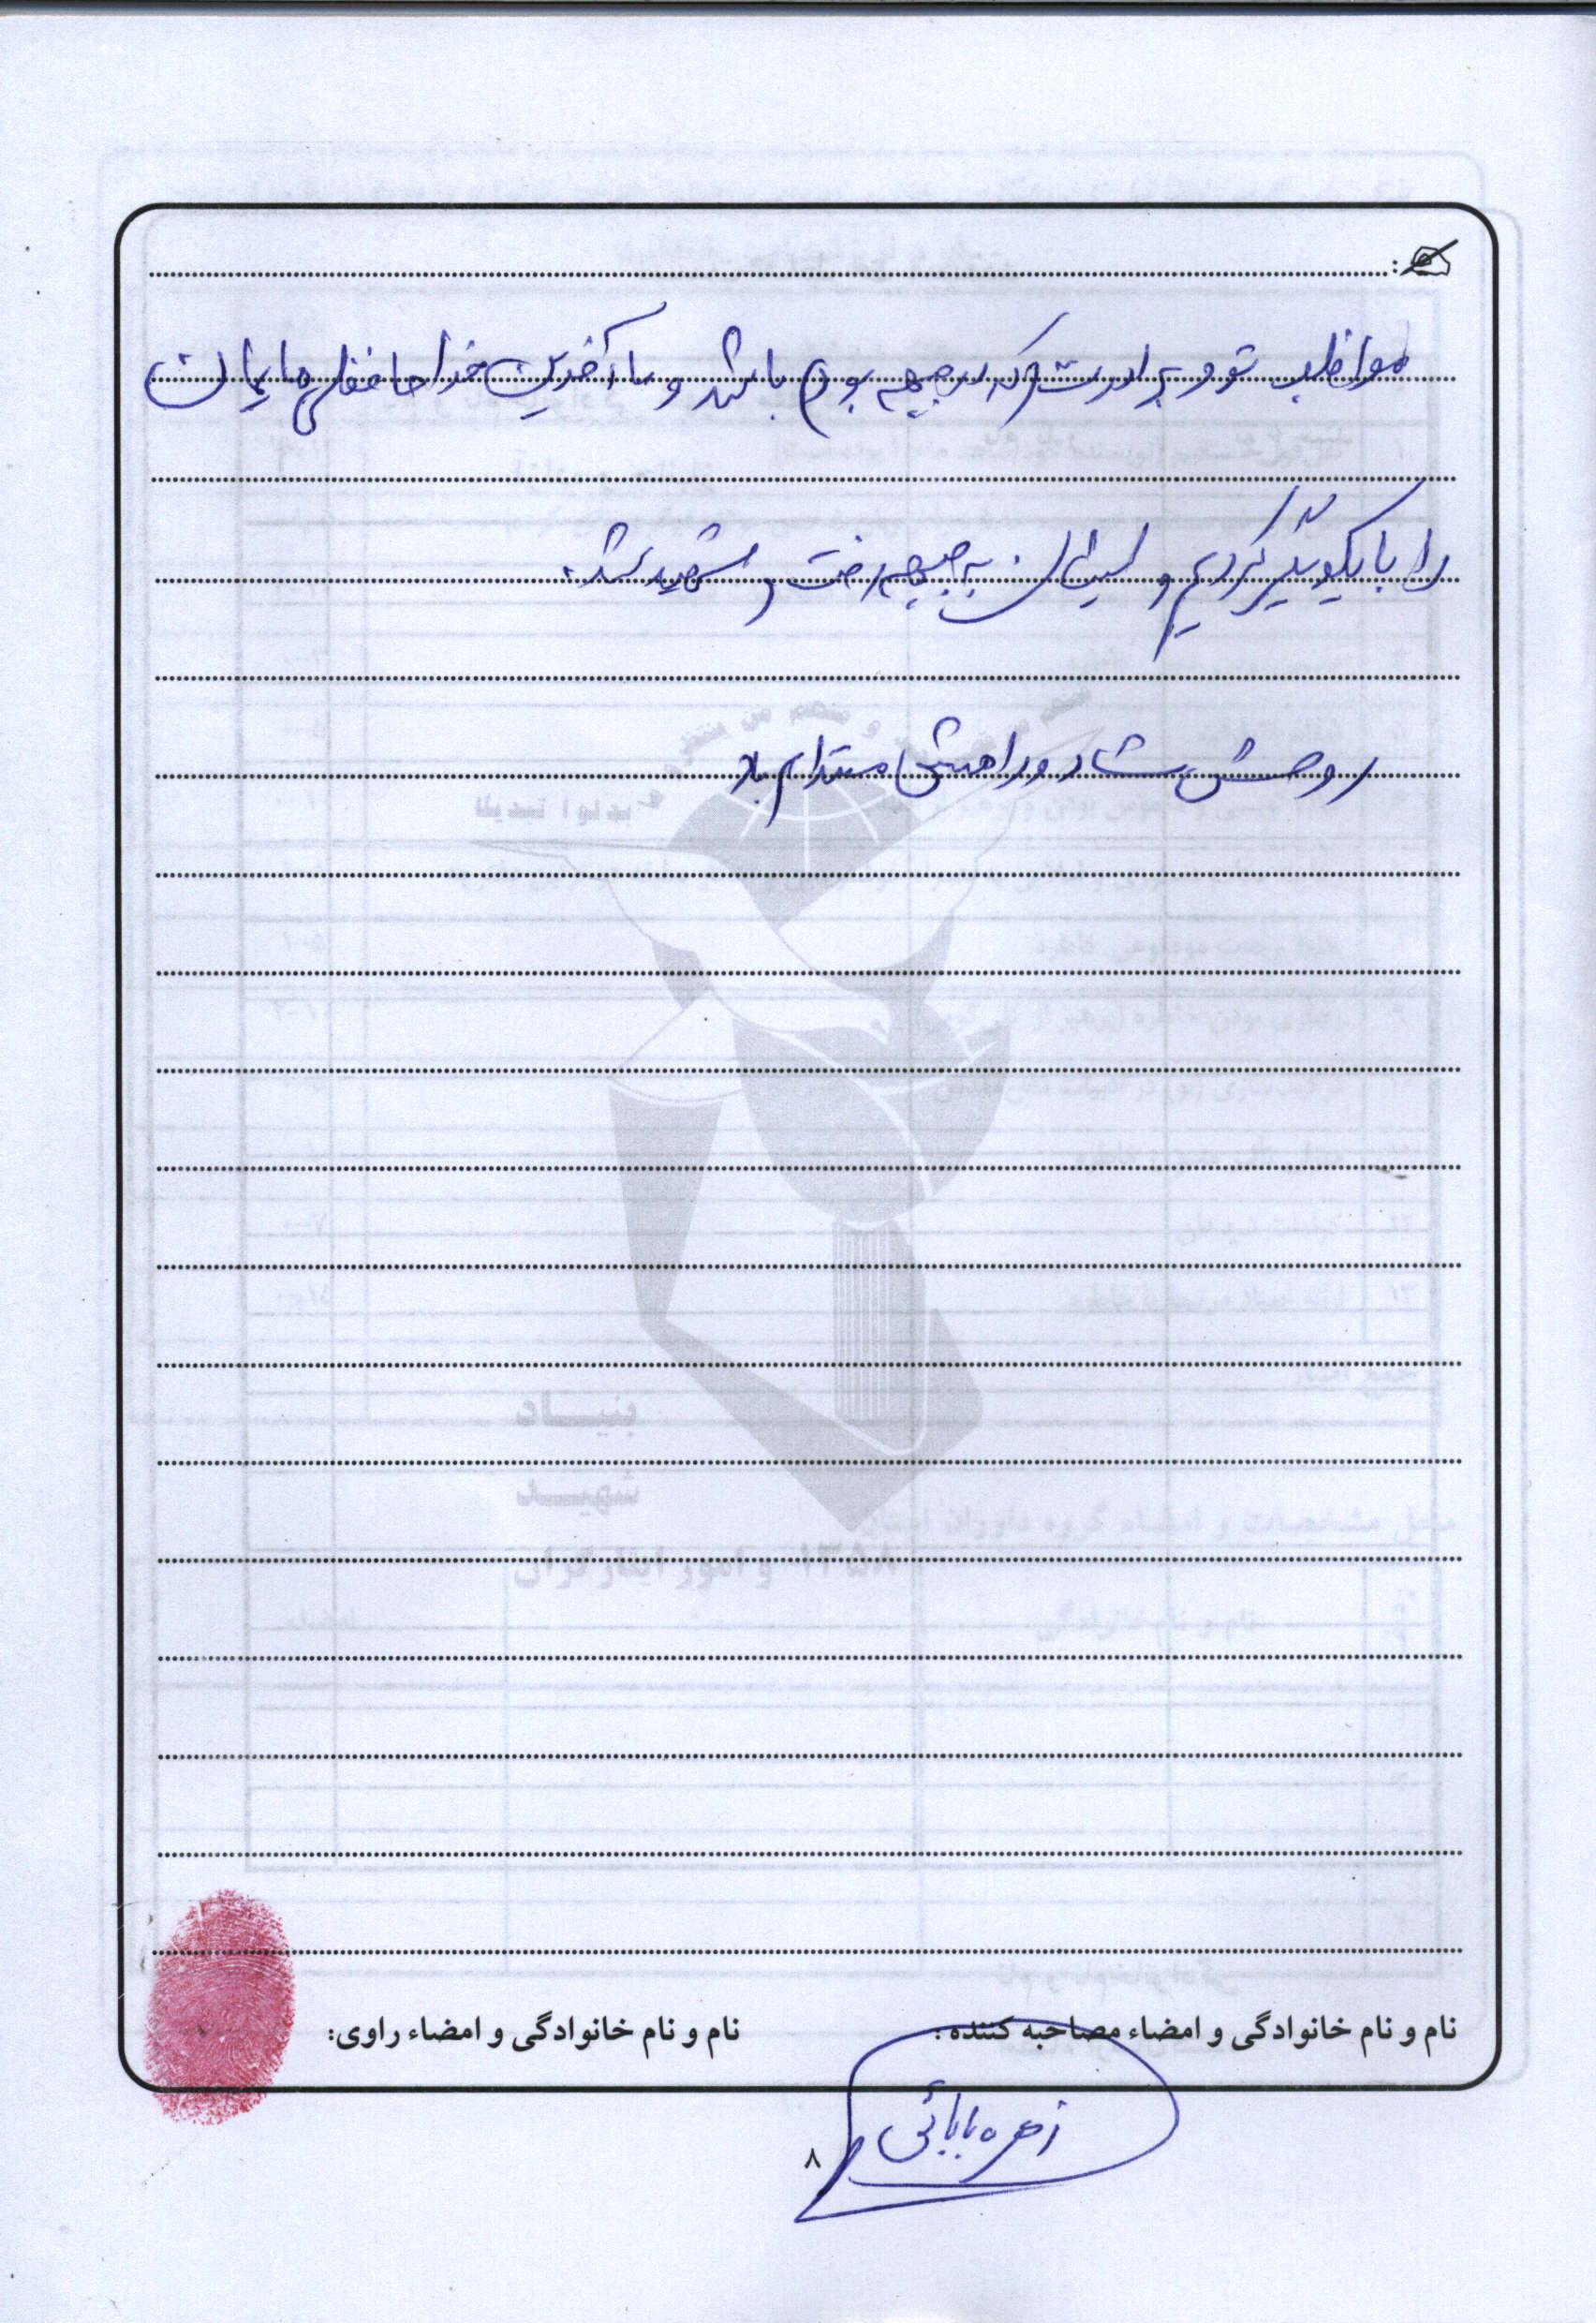 مواظب تو و برادرت (که در جبهه بود) باشد و ما آخرین خداحافظی هایمان
را با یکدیگر کردیم و ایشان به جبهه رفت و شهید شد.
روحش شاد و راهش مستدام باد
نام و نام خانوادگی و امضاء مصاحبه کننده:
نام و نام خانوادگی و امضاء راوی:
زهره بابائی
۸
بنیـــاد
شهیـــد
و امور ایثارگران
۱۳۵۸